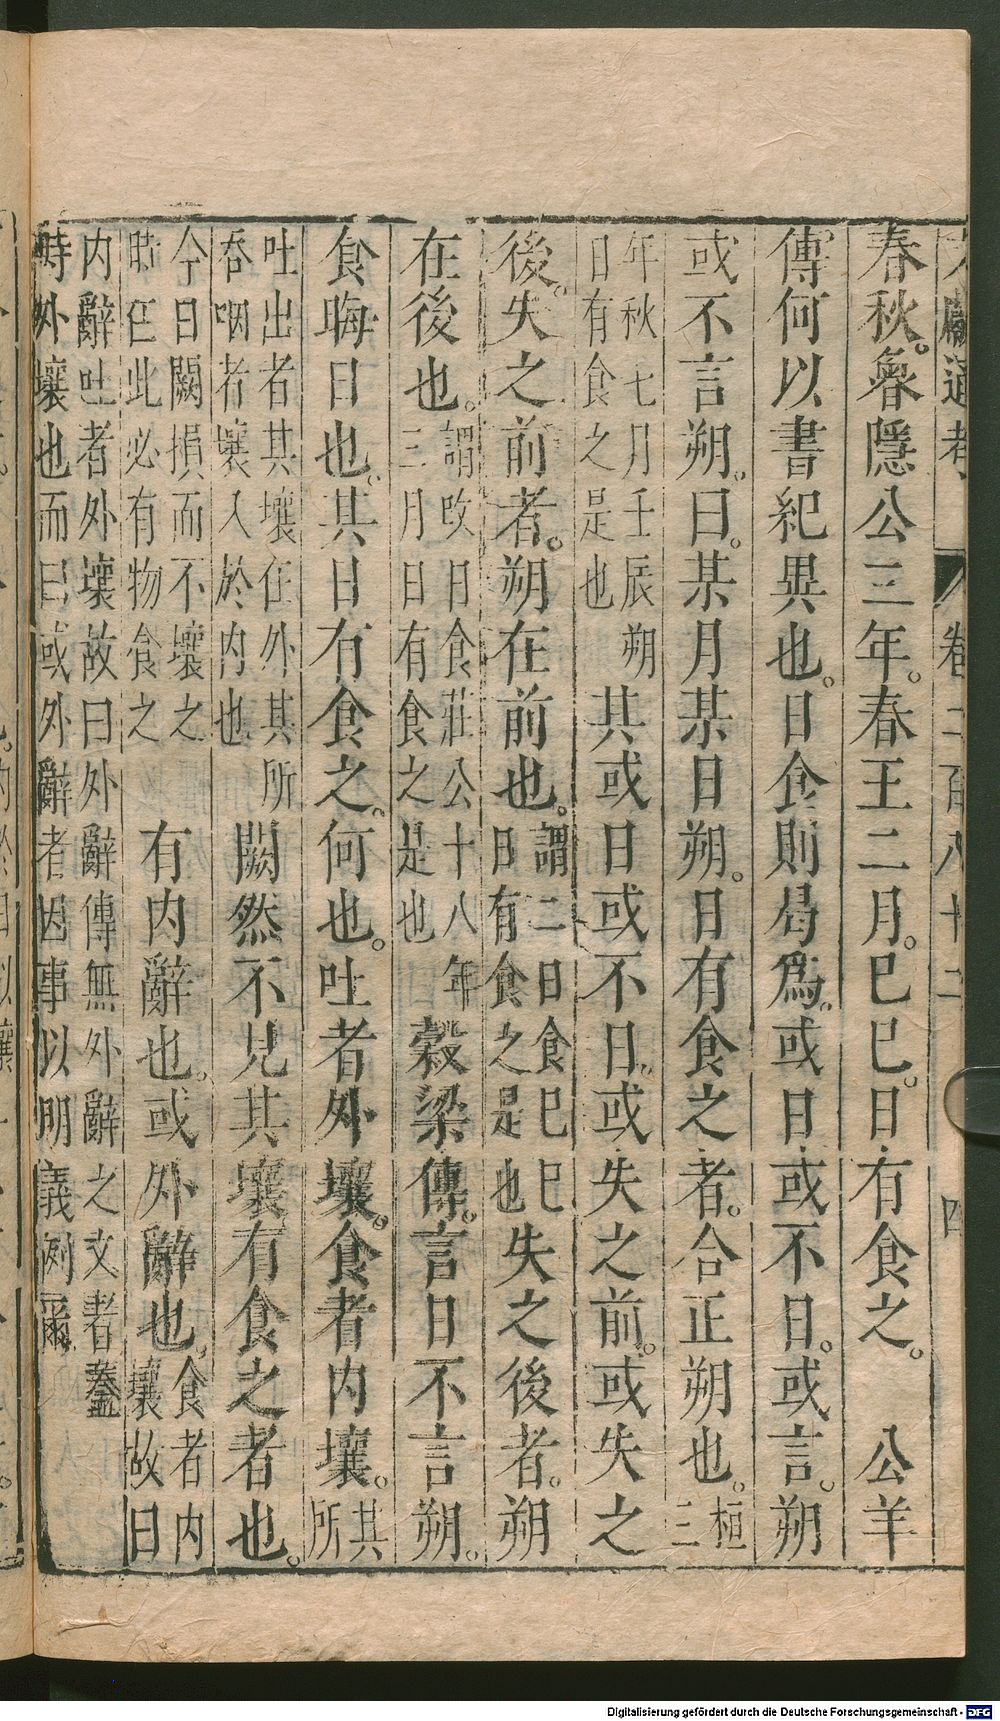 文獻通考 卷二百八十二 四
春秋。魯隱公三年。春王二月。巳巳。日有食之。 公羊
傳何以書紀異也。日食則曷爲。或日或不日。或言。朔
或不言朔。曰。某月某日朔。日有食之者。合正朔也。桓
三
年秋七月壬辰朔
日有食之是也
其或日或不日。或失之前。或失之
後。失之前者。朔在前也。謂二日食巳巳
日有食之是也
失之後者。朔
在後也。謂攺日食莊公十八年
三月日有食之是也
穀梁傳。言日不言朔。
食晦日也。其日有食之。何也。吐者外壤。食者內壤。其
所
吐出者其壤在外其所
吞咽者壤入於內也
闕然不見其壤有食之者也。
今日闕損而不壤之
時在此必有物食之
有內辭也。或外辭也。食者內
壤故曰
內辭吐者外壤故曰外辭傳無外辭之文者蓋
時外壤也而已或外辭者因事以明義例爾
Digitalisierung gefördert durch die Deutsche Forschungsgemeinschaft - DFG